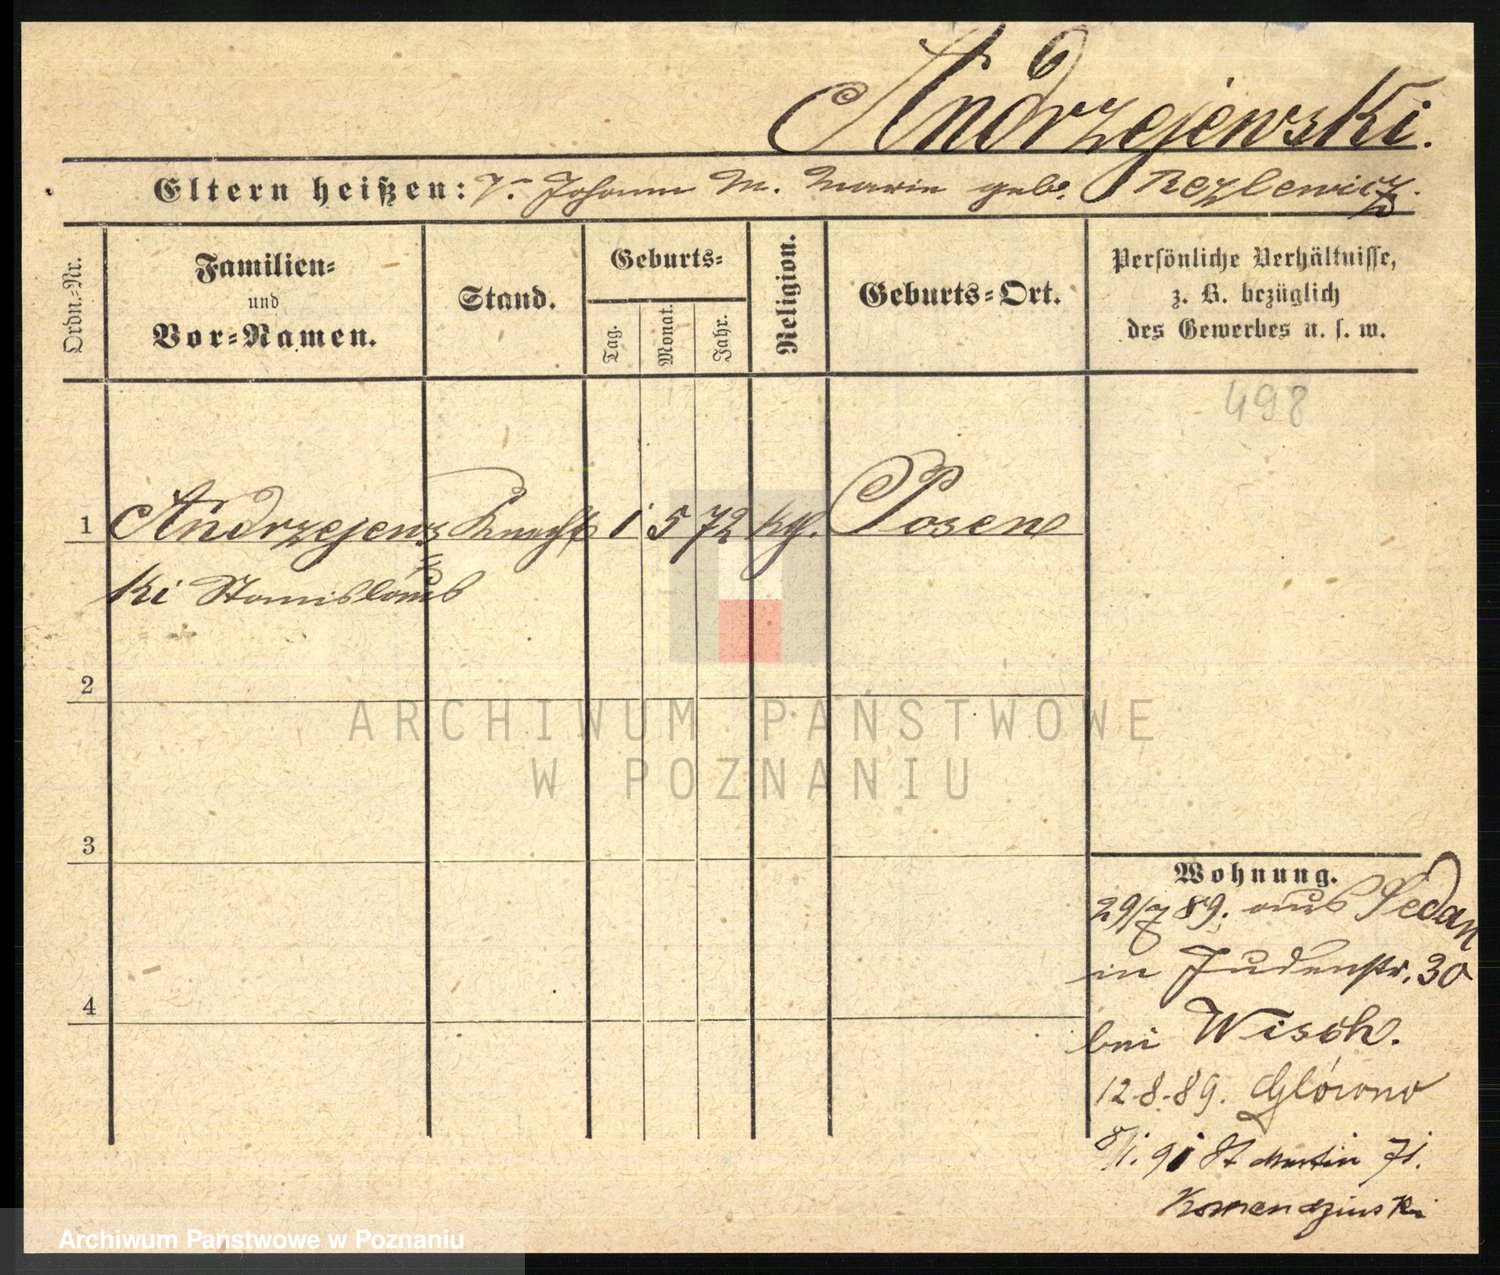 Andrzejewski.
Eltern heißen: V. Johann M. Marie geb. Rezlewicz.
Ordn.-Nr.
Familien-
und
Vor-Namen.
Stand.
Geburts-
Tag.
Monat.
Jahr.
Religion.
Geburts-Ort.
Persönliche Verhältnisse,
z. B. bezüglich
des Gewerbes u. s. w.
498
1 Andrzejews Knecht 1 5 72 kth. Posen
ki Stanislaus
2
3
4
Wohnung.
29/7 89. aus Sedan
in Judenstr. 30
bei Wisch.
12.8.89. Glówno
8/1. 91 St Martin 71.
Komendzinski
ARCHIWUM PAŃSTWOWE
W POZNANIU
Archiwum Państwowe w Poznaniu